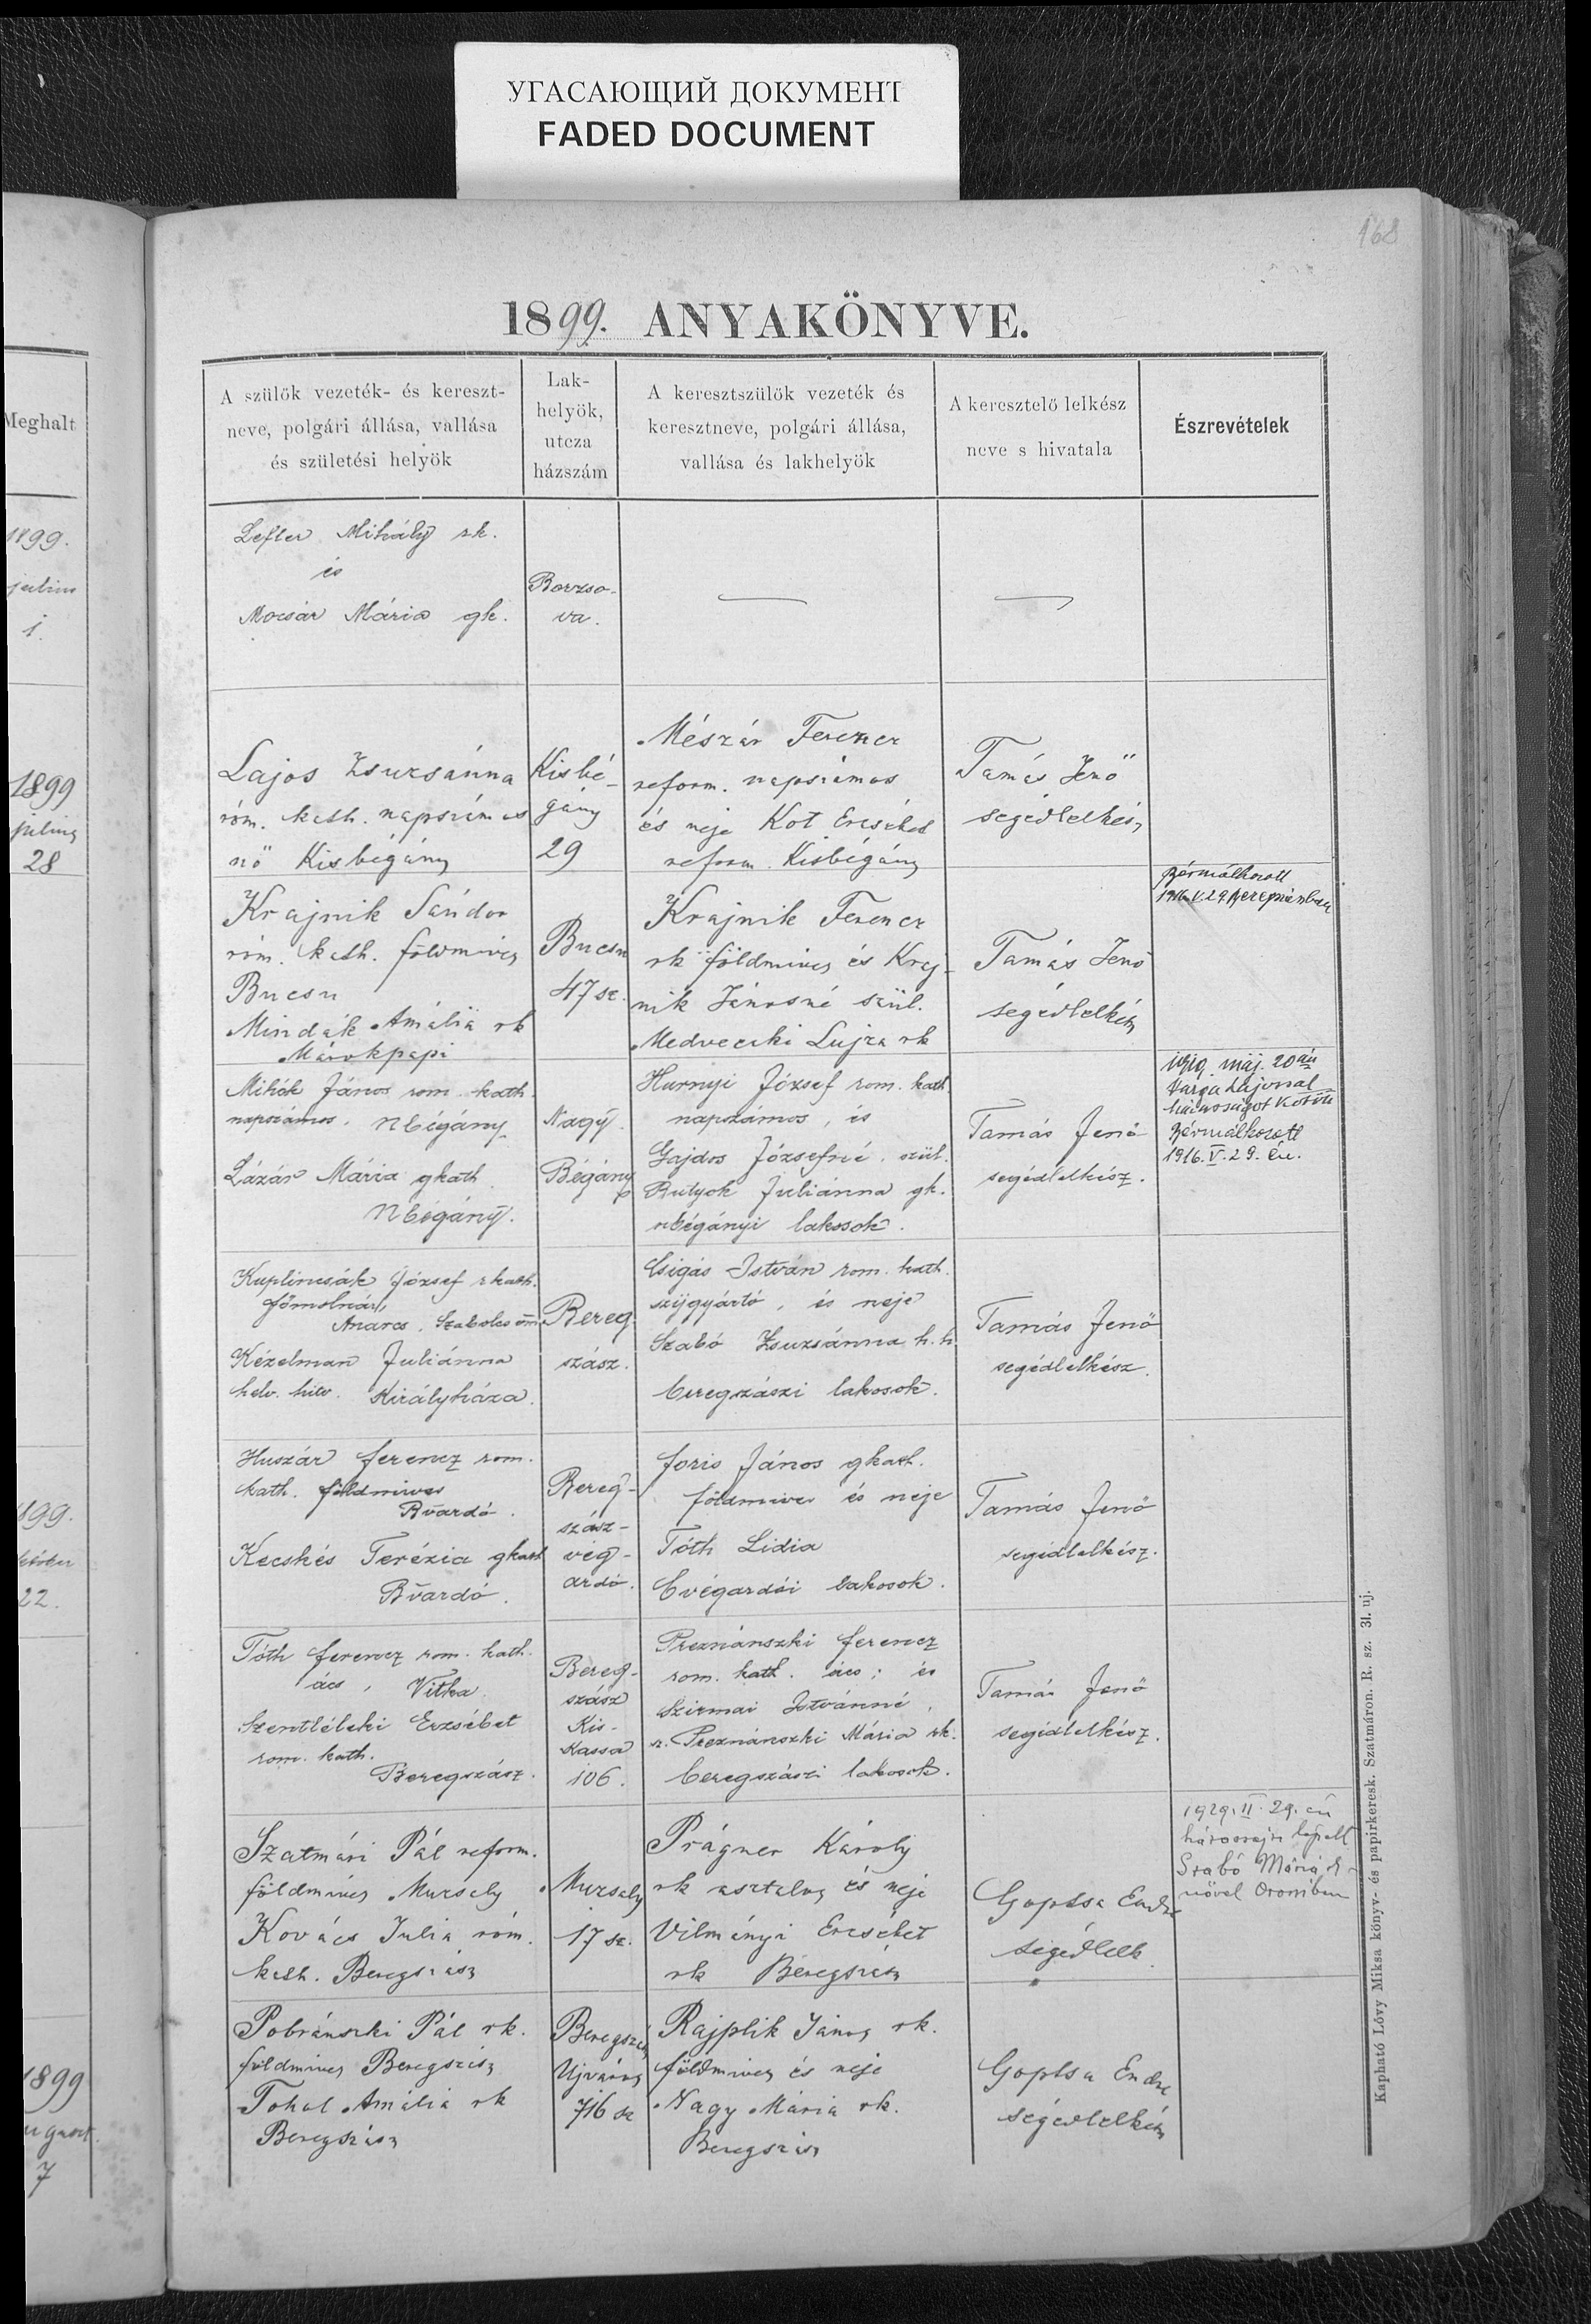 УГАСАЮЩИЙ ДОКУМЕНТ
FADED DOCUMENT
168
1899. ANYAKÖNYVE.
Meghalt
1899.
julius
1.
1899
julius
28
1899.
október
22.
1899
august.
7
A szülők vezeték- és kereszt-
neve, polgári állása, vallása
és születési helyök
Lak-
helyök,
utcza
házszám
A keresztszülők vezeték és
keresztneve, polgári állása,
vallása és lakhelyök
A keresztelő lelkész
neve s hivatala
Észrevételek
Lefler Mihály rk.
és
Mocsár Mária gk.
Borzso-
va.
Lajos Zsuzsánna
róm. kath. napszámos
nő Kisbégány
Kisbé-
gány
29
Mészár Ferencz
reform. napszámos
és neje Kot Erzsébet
reform. Kisbégány
Tamás Jenő
segédlelkész
Krajnik Sándor
róm. kath. földmives
Bucsu
Mindák Amália rk
Márokpapi
Bucsu
47 sz.
Krajnik Ferencz
rk földmives és Kraj-
nik Jánosné szül.
Medveczki Lujza rk
Tamás Jenő
segédlelkész
Bérmálkozott
1916. V. 29 Beregszászban
Mihók János rom. kath.
napszámos. Nbégány
Lázár Mária gkath.
Nbégány.
Nagy-
Bégány
Hurnyi József rom. kath
napszámos, és
Gajdos Józsefné, szül.
Rutyok Juliánna gk.
nbégányi lakosok.
Tamás Jenő
segédlelkész.
1919. máj. 20án
Varga Lajossal
házasságot kötött
Bérmálkozott
1916. V. 29. én.
Kuplincsák József rkath.
főmolnár,
Anarcs, Szabolcs m.
Kézelman Juliánna
helv. hitv. Királyháza.
Bereg-
szász.
Csigás István rom. kath.
szijgyártó, és neje
Szabó Zsuzsánna h. h.
beregszászi lakosok.
Tamás Jenő
segédlelkész.
Huszár Ferencz rom.
kath. földmives
Bvardó.
Kecskés Terézia gkath
Bvardó.
Bereg-
szász-
vég-
ardó.
Joris János gkath.
földmives és neje
Tóth Lidia
bvégardói lakosok.
Tamás Jenő
segédlelkész.
Tóth Ferencz rom. kath.
ács, Vitka
Szentléleki Erzsébet
rom. kath.
Beregszász.
Bereg-
szász
Kis-
Kassa
106.
Preznánszki Ferencz
rom. kath. ács; és
Szirmai Istvánné,
sz. Preznánszki Mária rk.
beregszászi lakosok.
Tamás Jenő
segédlelkész.
Szatmári Pál reform.
földmives Muzsaly
Kovács Julia róm.
kath. Beregszász
Muzsaly
17 sz.
Prágner Károly
rk asztalos és neje
Vilmányi Erzsébet
rk Beregszász
Goptsa Endre
segédlelk.
1929. II. 29. én
házasságra lépett
Szabó Mária
nővel Orosiban
Pobránszki Pál rk.
földmives Beregszász
Tokal Amália rk
Beregszász
Beregszász
Ujváros
716 sz
Rajplik János rk.
földmives és neje
Nagy Mária rk.
Beregszász
Goptsa Endre
segédlelkész
Kapható Lővy Miksa könyv- és papirkeresk. Szatmáron. R. sz. 31. uj.